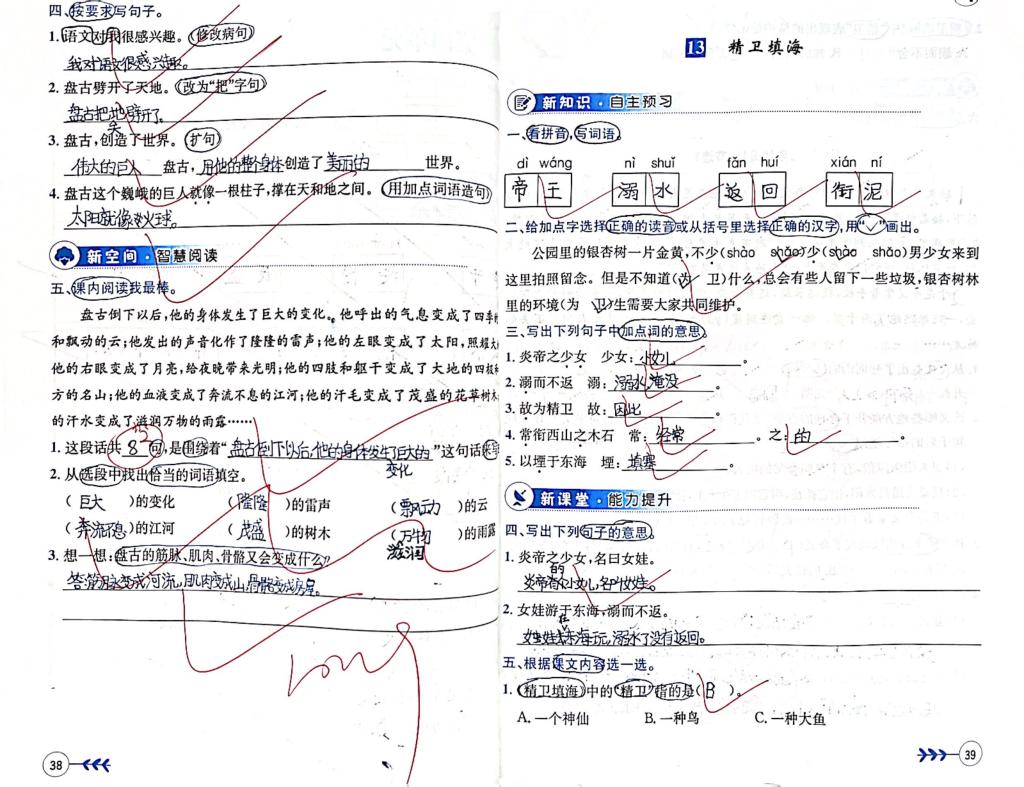 四、按要求写句子。
1. 语文对我很感兴趣。(修改病句)
我对语文很感兴趣。
2. 盘古劈开了天地。(改为“把”字句)
盘古把天地劈开了。
3. 盘古,创造了世界。(扩句)
伟大的巨人 盘古,用他的整个身体创造了美丽的 世界。
4. 盘古这个巍峨的巨人就像一根柱子,撑在天和地之间。(用加点词语造句)
太阳就像火球。
新空间·智慧阅读
五、课内阅读我最棒。
盘古倒下以后,他的身体发生了巨大的变化。他呼出的气息变成了四季
和飘动的云;他发出的声音化作了隆隆的雷声;他的左眼变成了太阳,照耀大
他的右眼变成了月亮,给夜晚带来光明;他的四肢和躯干变成了大地的四极
方的名山;他的血液变成了奔流不息的江河;他的汗毛变成了茂盛的花草树
的汗水变成了滋润万物的雨露……
1. 这段话共 8 句,是围绕着“盘古倒下以后,他的身体发生了巨大的变化”这句话来
2. 从选段中找出恰当的词语填空。
(巨大)的变化 (隆隆)的雷声 (飘动)的云
(奔流不息)的江河 (茂盛)的树木 (滋润万物)的雨露
3. 想一想:盘古的筋脉、肌肉、骨骼又会变成什么?
答:筋脉变成河流,肌肉变成山,骨骼变成房屋。
long
38
13 精卫填海
新知识·自主预习
一、看拼音,写词语。
dì wáng nì shuǐ fǎn huí xián ní
帝王 溺水 返回 衔泥
二、给加点字选择正确的读音或从括号里选择正确的汉字,用“✓”画出。
公园里的银杏树一片金黄,不少(shào shǎo)少(shào shǎo)男少女来到
这里拍照留念。但是不知道(为 卫)什么,总会有些人留下一些垃圾,银杏树林
里的环境(为 卫)生需要大家共同维护。
三、写出下列句子中加点词的意思。
1. 炎帝之少女 少女:小女儿。
2. 溺而不返 溺:溺水,淹没。
3. 故为精卫 故:因此。
4. 常衔西山之木石 常:经常。之:的。
5. 以堙于东海 堙:填塞。
新课堂·能力提升
四、写出下列句子的意思。
1. 炎帝之少女,名曰女娃。
炎帝的小女儿,名叫女娃。
2. 女娃游于东海,溺而不返。
女娃在东海玩,溺水了没有返回。
五、根据课文内容选一选。
1. 《精卫填海》中的“精卫”指的是(B)。
A. 一个神仙 B. 一种鸟 C. 一种大鱼
39